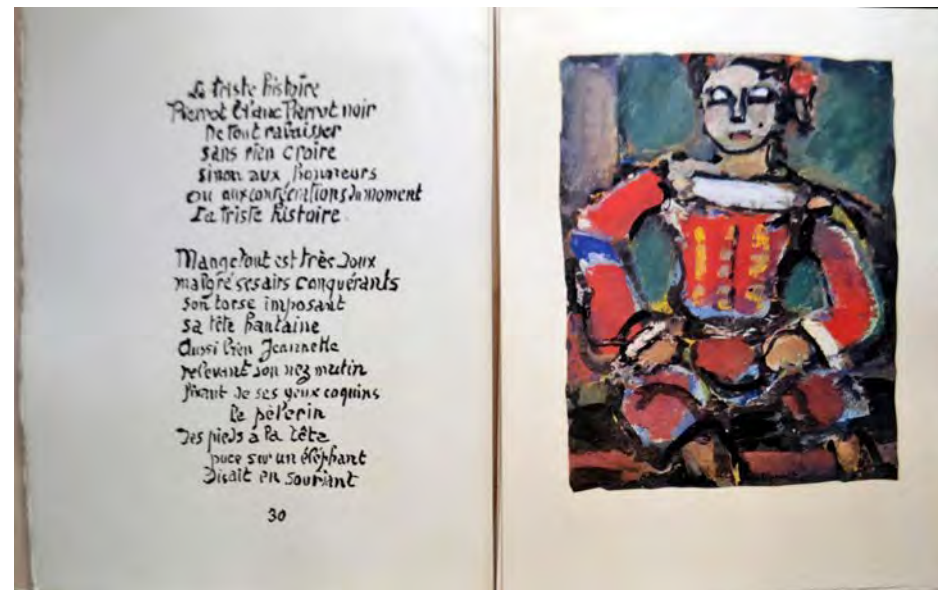 La triste histoire
Pierrot blanc Pierrot noir
De tout rabaisser
sans rien croire
sinon aux honneurs
ou aux consécrations du moment
La triste histoire.
Mangetout est très doux
malgré ses airs conquérants
son torse imposant
sa tête hautaine
Aussi bien Jeannette
relevant son nez mutin
fixant de ses yeux coquins
le pèlerin
Des pieds à la tête
puce sur un éléphant
Disait en souriant
30